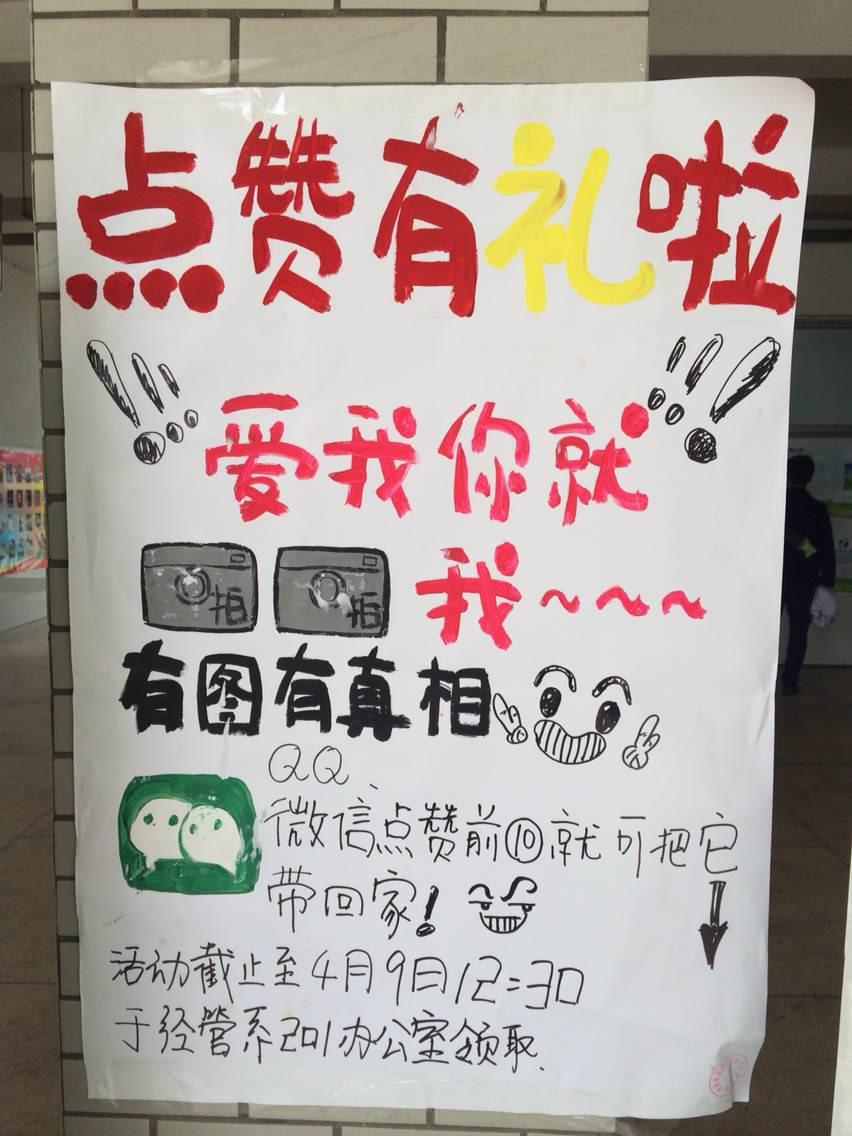 点赞有礼啦
!!! !!!
爱我你就
拒 拒 我~~~
有图有真相
QQ、
微信点赞前⑩就可把它
带回家!
活动截止至4月9日12:30
于经管系201办公室领取.